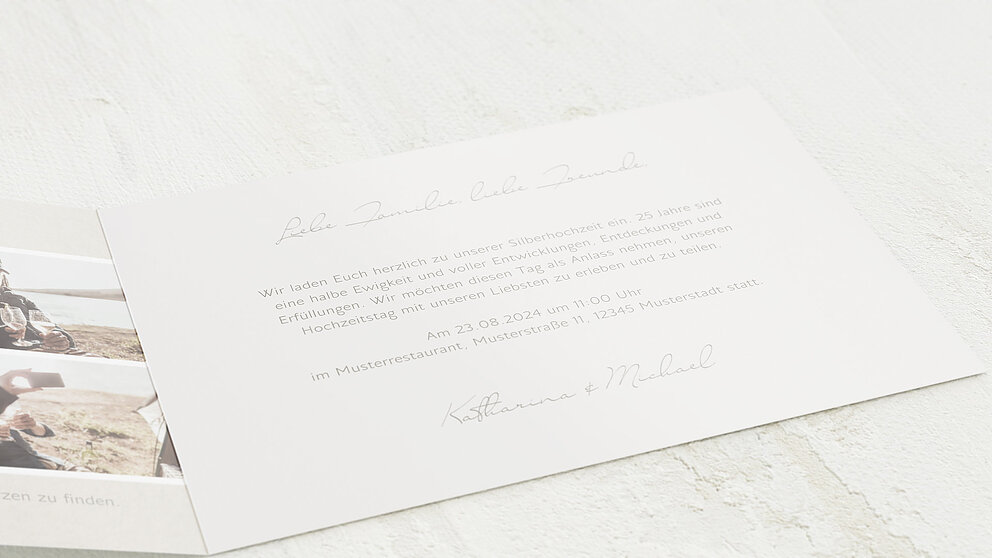 Liebe Familie, liebe Freunde,
Wir laden Euch herzlich zu unserer Silberhochzeit ein. 25 Jahre sind
eine halbe Ewigkeit und voller Entwicklungen, Entdeckungen und
Erfüllungen. Wir möchten diesen Tag als Anlass nehmen, unseren
Hochzeitstag mit unseren Liebsten zu erleben und zu teilen.
Am 23.08.2024 um 11:00 Uhr
im Musterrestaurant, Musterstraße 11, 12345 Musterstadt statt.
Katharina & Michael
zen zu finden.